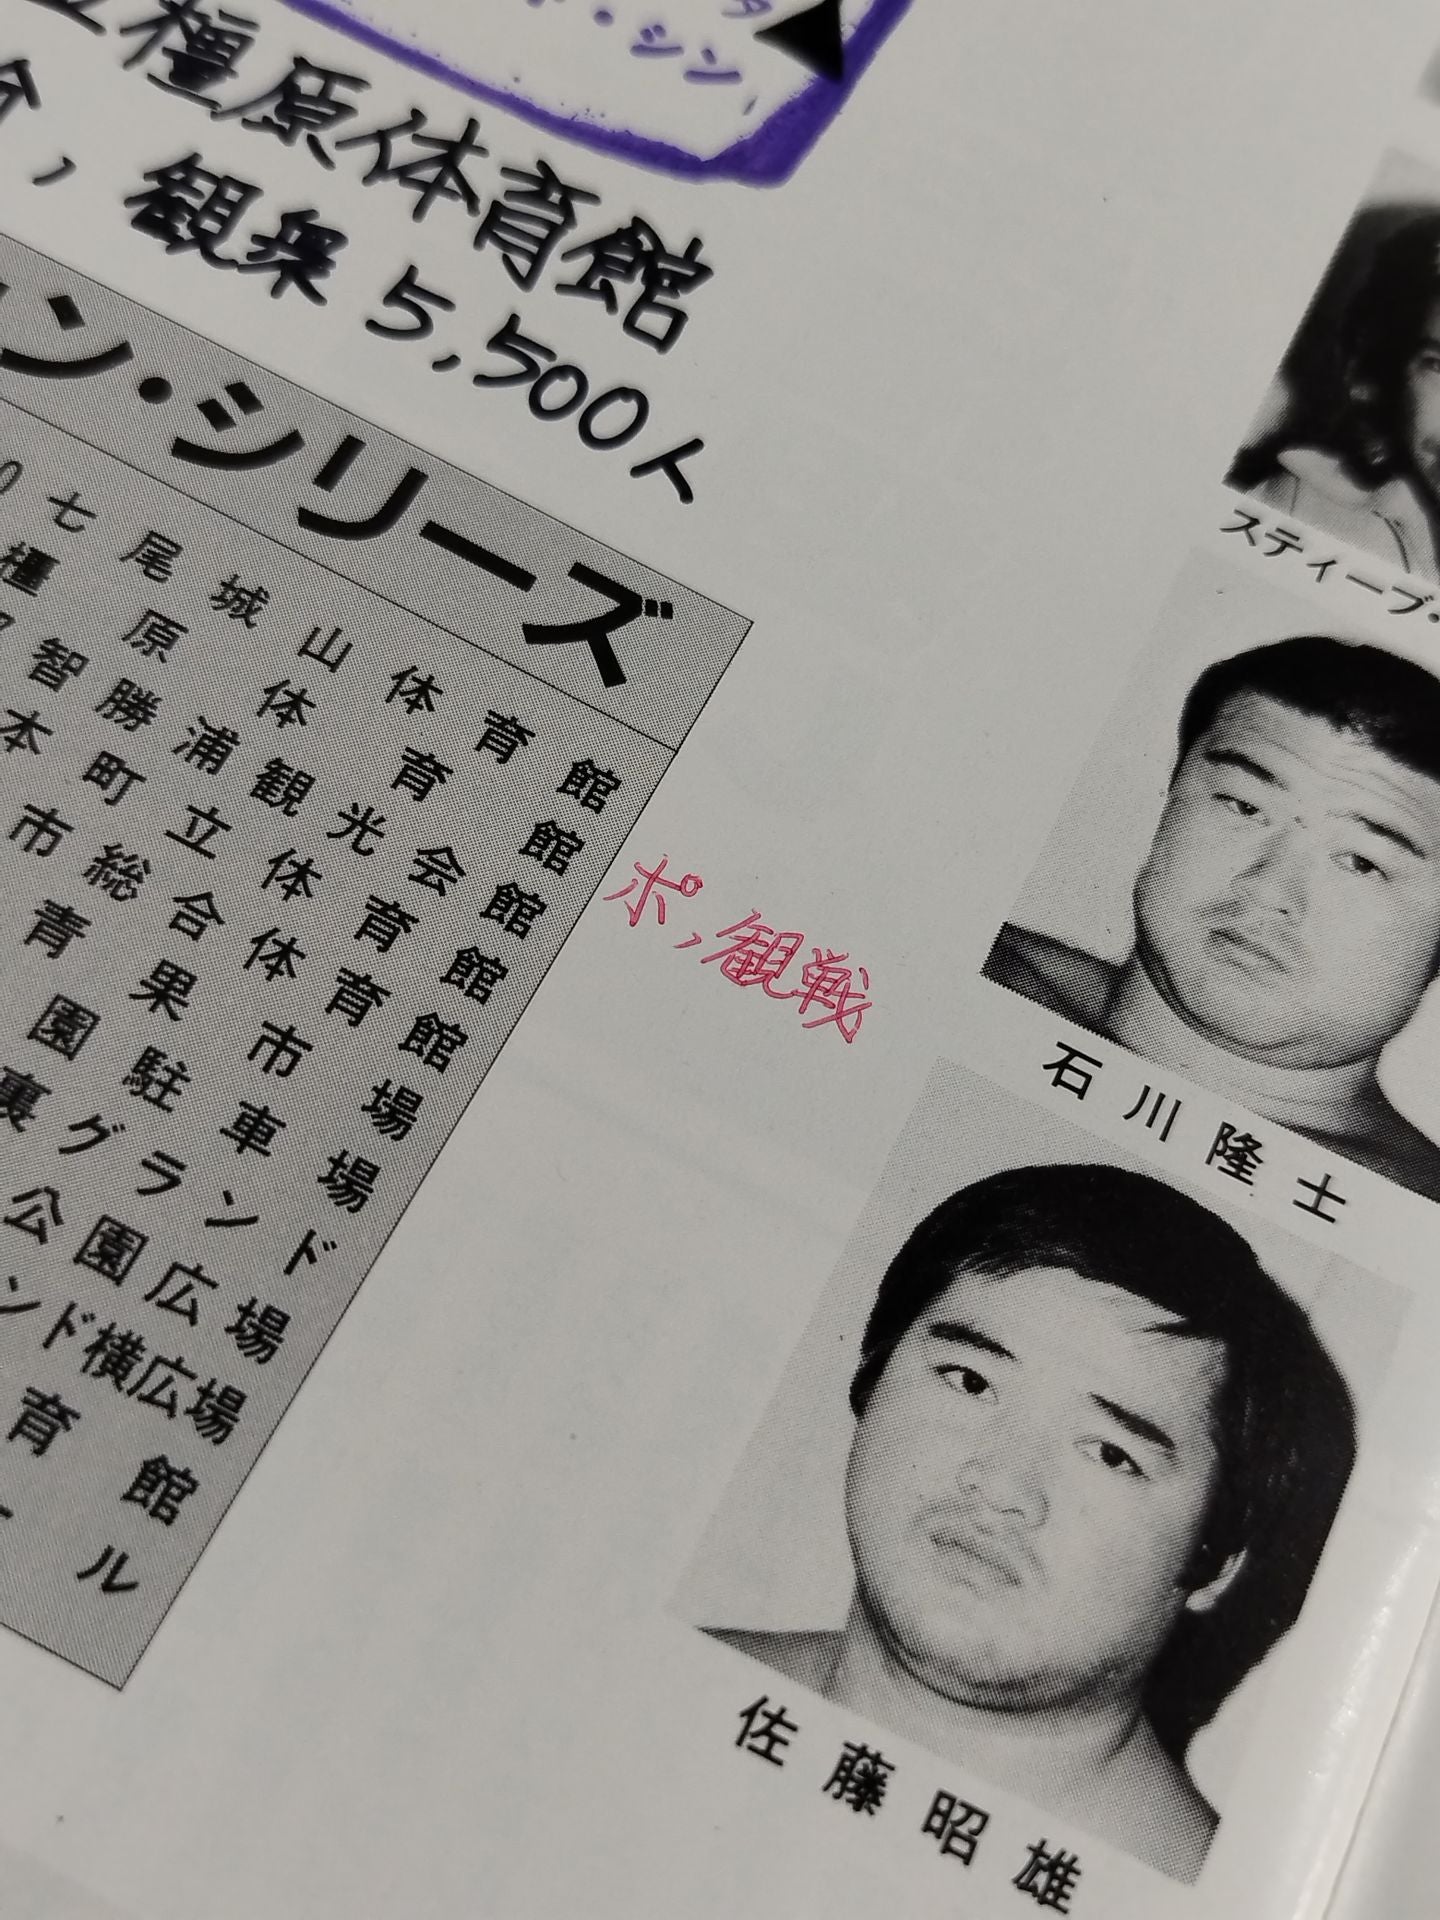 ・シン、
橿原体育館
観衆 5,500人
ン・シリーズ
七尾城山体育館
橿原体育館
智勝浦観光会館
本町立体育館
市総合体育館
青果市場
園駐車場
裏グランド
公園広場
ンド横広場
育館
ール
ポ,観戦
スティーブ・
石川隆士
佐藤昭雄